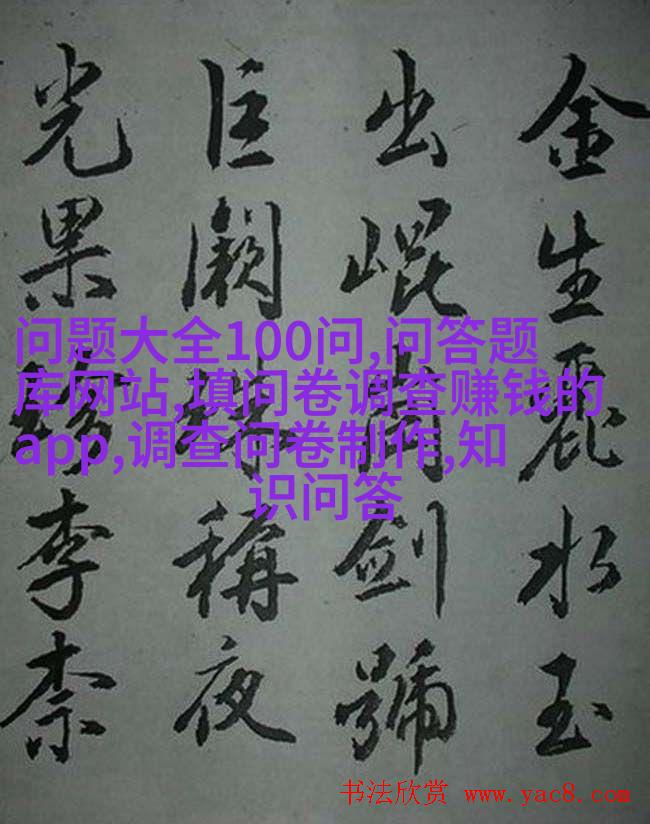 金生麗水玉
出崐劍號
巨闕珠稱夜
光果珍李柰
问题大全100问,问答题
库网站,填问卷调查赚钱的
app,调查问卷制作,知
识问答
书法欣赏 www.yac8.com